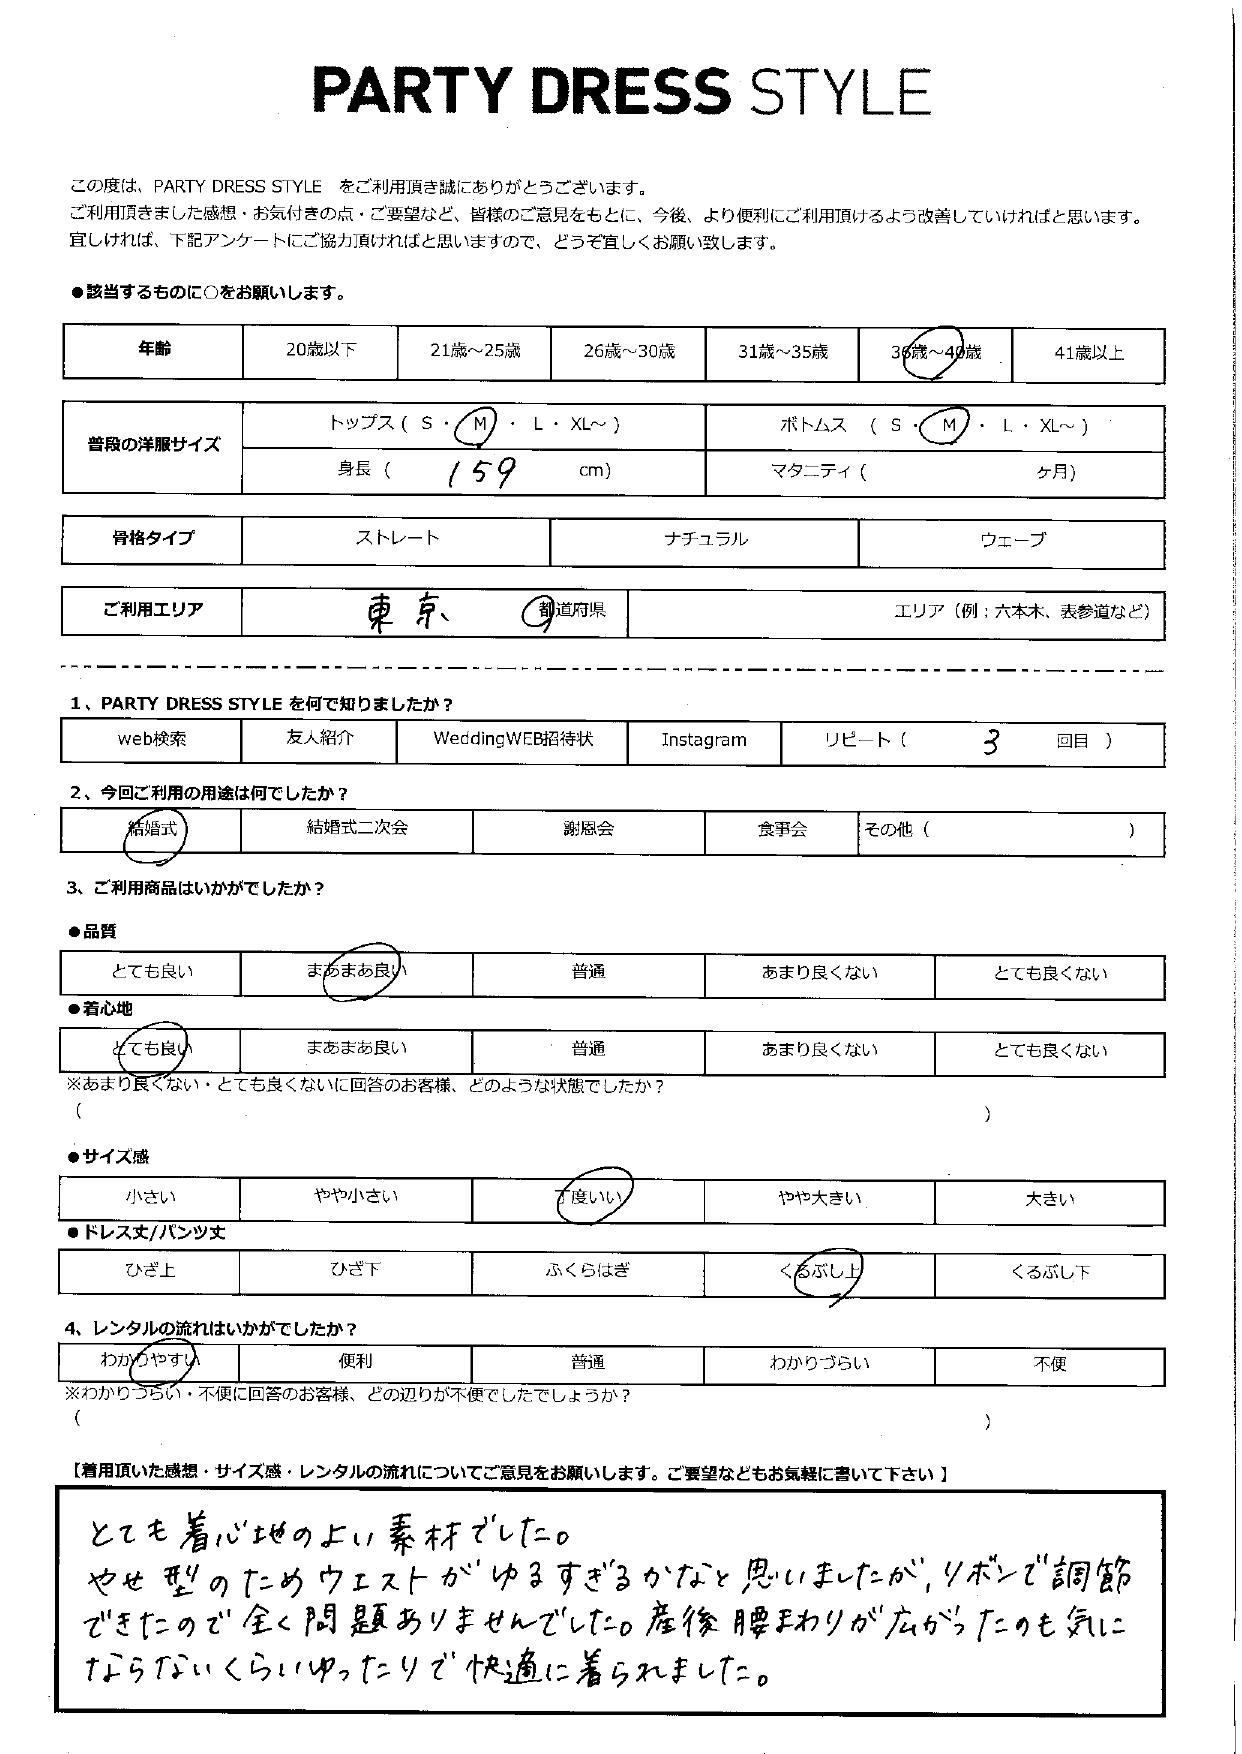 PARTY DRESS STYLE
この度は、PARTY DRESS STYLE をご利用頂き誠にありがとうございます。
ご利用頂きました感想・お気付きの点・ご要望など、皆様のご意見をもとに、今後、より便利にご利用頂けるよう改善していければと思います。
宜しければ、下記アンケートにご協力頂ければと思いますので、どうぞ宜しくお願い致します。
●該当するものに○をお願いします。
年齢 20歳以下 21歳～25歳 26歳～30歳 31歳～35歳 36歳～40歳 41歳以上
普段の洋服サイズ トップス ( S ・ M ・ L ・ XL～ ) ボトムス ( S ・ M ・ L ・ XL～ )
身長 ( 159 cm) マタニティ ( ヶ月)
骨格タイプ ストレート ナチュラル ウェーブ
ご利用エリア 東京、 都道府県 エリア（例；六本木、表参道など）
1、PARTY DRESS STYLE を何で知りましたか？
web検索 友人紹介 WeddingWEB招待状 Instagram リピート ( 3 回目 )
2、今回ご利用の用途は何でしたか？
結婚式 結婚式二次会 謝恩会 食事会 その他 ( )
3、ご利用商品はいかがでしたか？
●品質
とても良い まあまあ良い 普通 あまり良くない とても良くない
●着心地
とても良い まあまあ良い 普通 あまり良くない とても良くない
※あまり良くない・とても良くないに回答のお客様、どのような状態でしたか？
( )
●サイズ感
小さい やや小さい 丁度いい やや大きい 大きい
●ドレス丈/パンツ丈
ひざ上 ひざ下 ふくらはぎ くるぶし上 くるぶし下
4、レンタルの流れはいかがでしたか？
わかりやすい 便利 普通 わかりづらい 不便
※わかりづらい・不便に回答のお客様、どの辺りが不便でしたでしょうか？
( )
【着用頂いた感想・サイズ感・レンタルの流れについてご意見をお願いします。ご要望などもお気軽に書いて下さい】
とても着心地のよい素材でした。
やせ型のためウエストがゆるすぎるかなと思いましたが、リボンで調節
できたので全く問題ありませんでした。産後腰まわりが広がったのも気に
ならないくらいゆったりで快適に着られました。